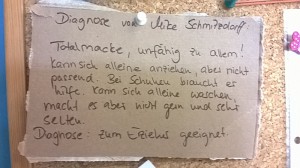 Diagnose von Mike Schmitzdorff
Totalmacke, unfähig zu allem!
Kann sich alleine anziehen, aber nicht
passend. Bei Schuhen braucht es
Hilfe. Kann sich alleine waschen,
macht es aber nicht gern und sehr
selten.
Diagnose: zum Erziehen geeignet